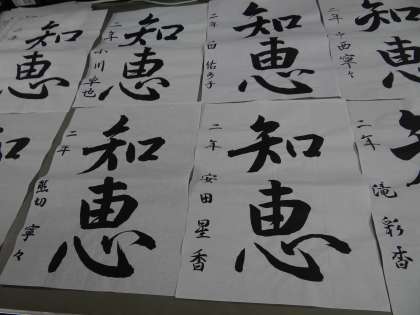 知恵
知恵
二年 小川 卓也
知恵
二年
知
二年 中西 寧々
知恵
二年 熊切 寧々
知恵
二年 安田 星香
二年 滝 彩香